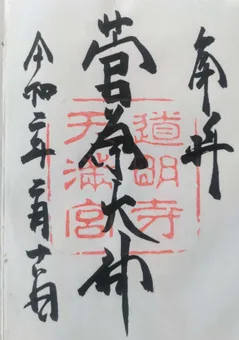 奉拝
道明寺
天満宮
菅原大神
令和二年二月